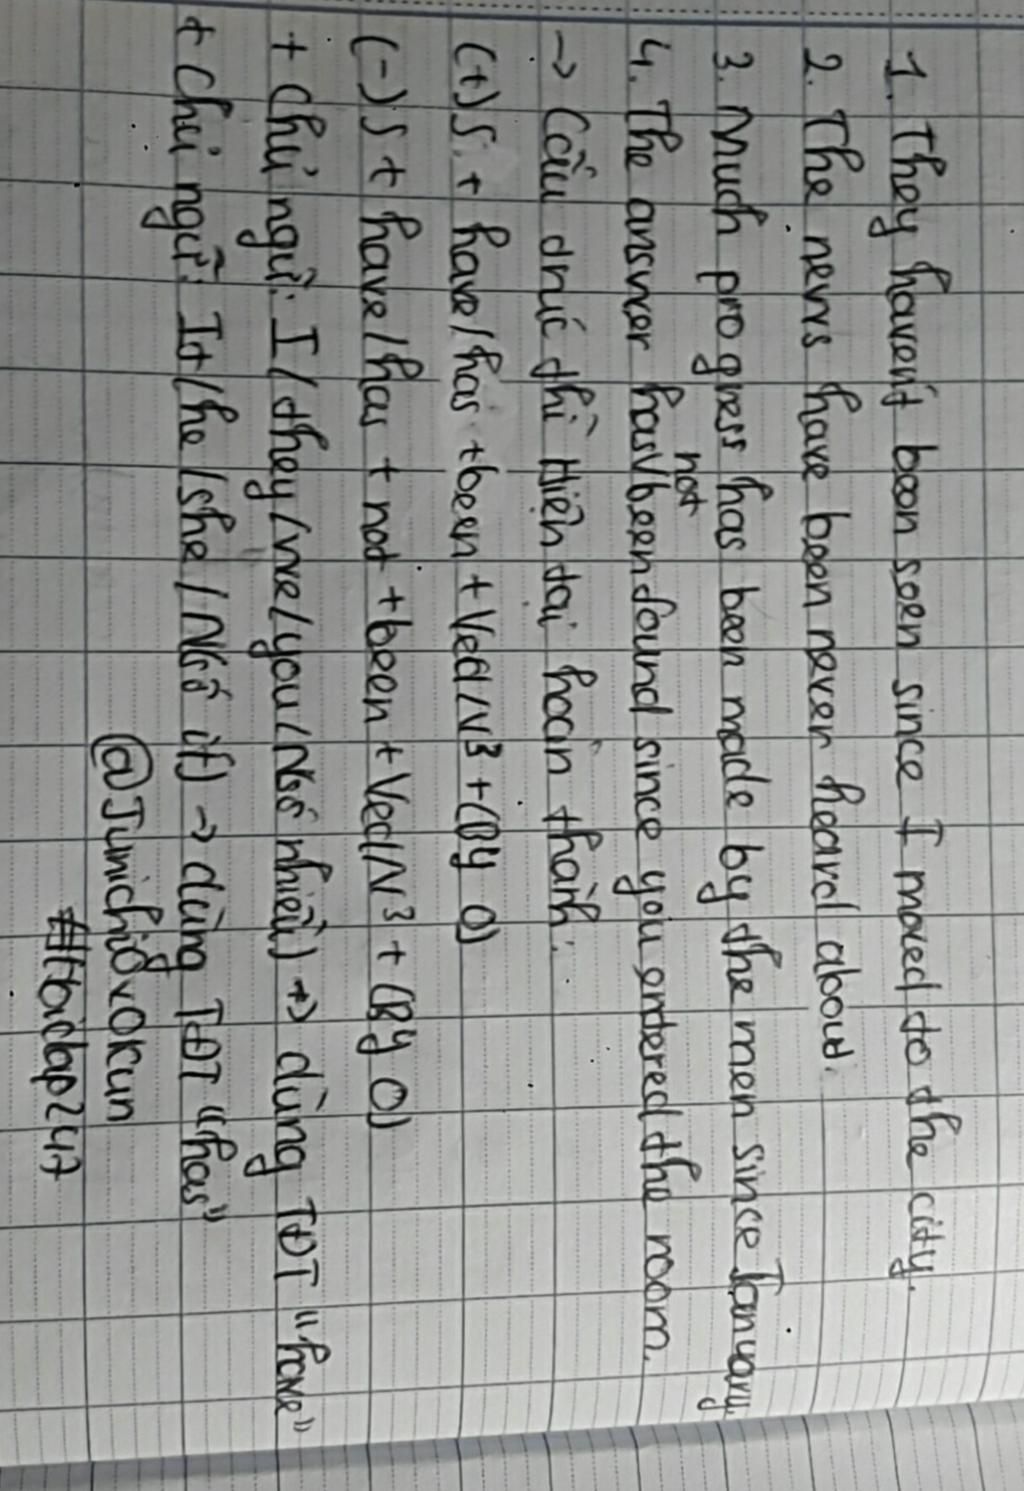 1. They haven't been seen since I moved to the city.
2. The news have been never heard about.
3. Much progress has been made by the men since January.
4. The answer has not been found since you entered the room.
→ Cấu trúc thì Hiện tại hoàn thành:
(+) S + have/has + been + Ved/V3 + (By O)
(-) S + have/has + not + been + Ved/V3 + (By O)
+ Chủ ngữ: I/they/we/you/N(số nhiều) → dùng TĐT "have"
+ Chủ ngữ: It/he/she/N(số ít) → dùng TĐT "has"
@JunichiovOkun
#Hoidap247